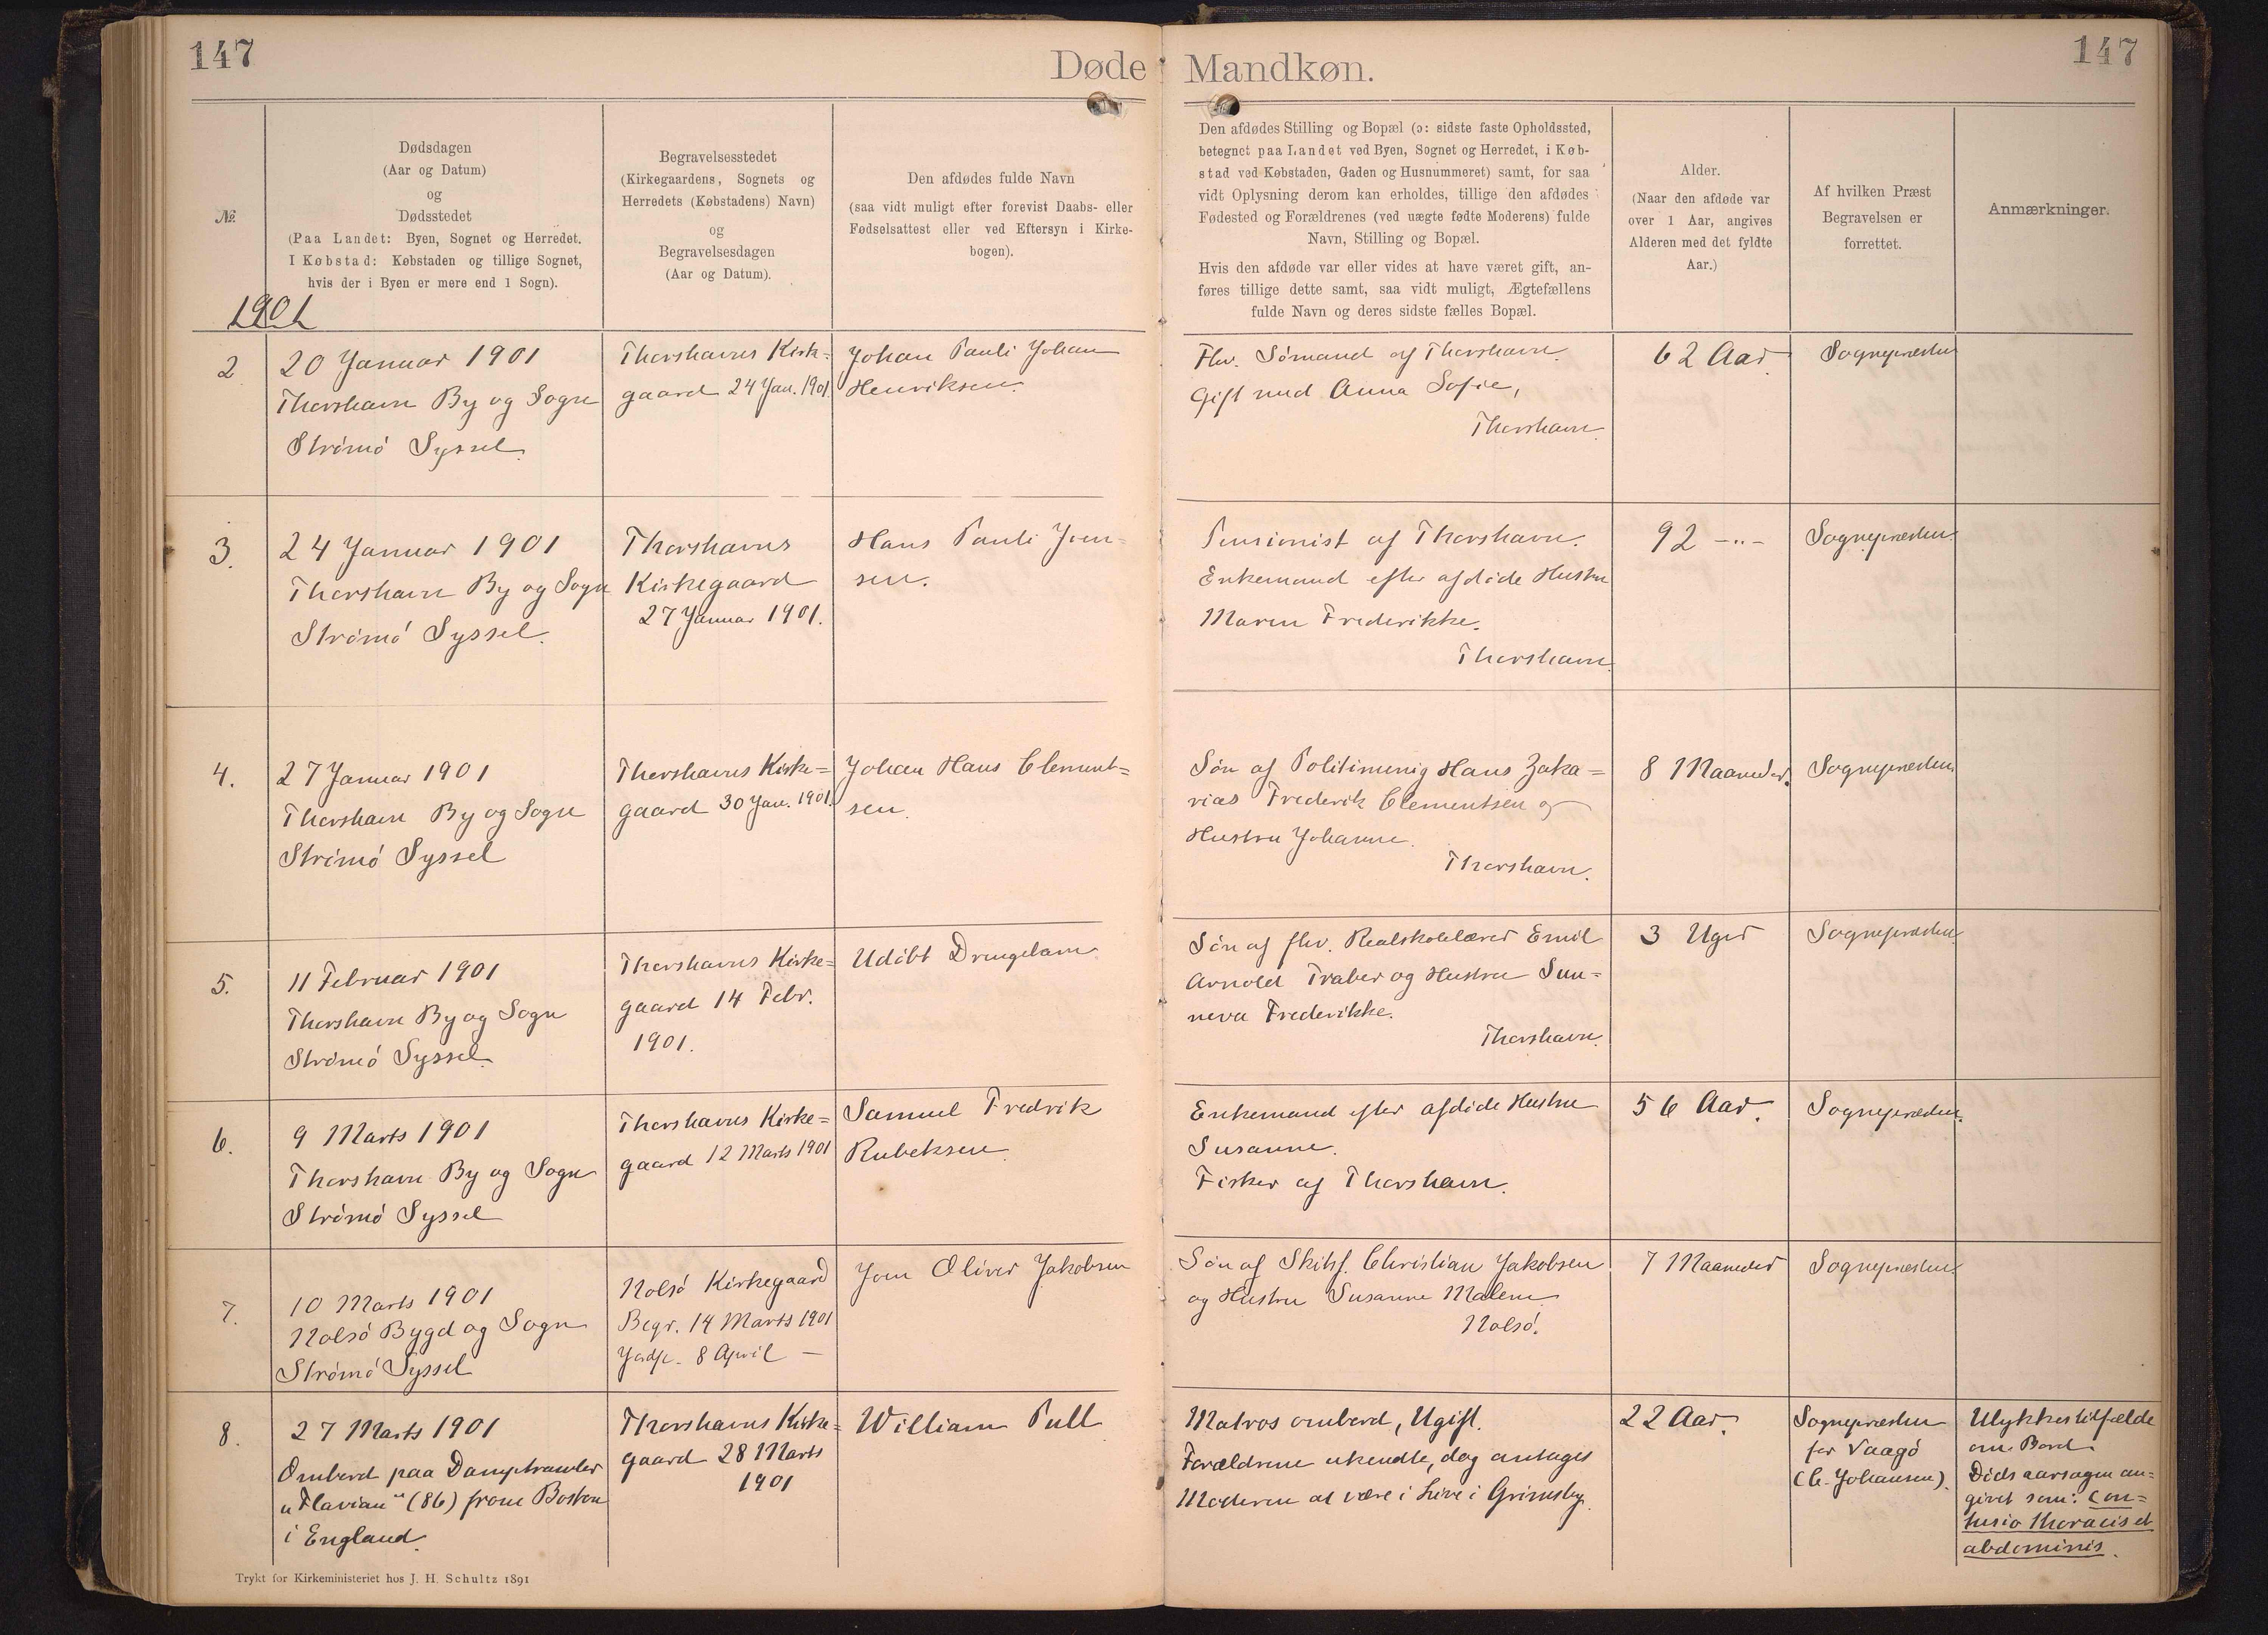 147
Døde Mandkøn.
147
№.
Dødsdagen
(Aar og Datum)
og
Dødsstedet
(Paa Landet: Byen, Sognet og Herredet.
I Købstad: Købstaden og tillige Sognet,
hvis der i Byen er mere end 1 Sogn).
Begravelsesstedet
(Kirkegaardens, Sognets og
Herredets (Købstadens) Navn)
og
Begravelsesdagen
(Aar og Datum).
Den afdødes fulde Navn
(saa vidt muligt efter forevist Daabs- eller
Fødselsattest eller ved Eftersyn i Kirke-
bogen).
Den afdødes Stilling og Bopæl (ɔ: sidste faste Opholdssted,
betegnet paa Landet ved Byen, Sognet og Herredet, i Køb-
stad ved Købstaden, Gaden og Husnummeret) samt, for saa
vidt Oplysning derom kan erholdes, tillige den afdødes
Fødested og Forældrenes (ved uægte fødte Moderens) fulde
Navn, Stilling og Bopæl.
Hvis den afdøde var eller vides at have været gift, an-
føres tillige dette samt, saa vidt muligt, Ægtefællens
fulde Navn og deres sidste fælles Bopæl.
Alder.
(Naar den afdøde var
over 1 Aar, angives
Alderen med det fyldte
Aar.)
Af hvilken Præst
Begravelsen er
forrettet.
Anmærkninger.
1901
2
20 Januar 1901
Thorshavn By og Sogn
Strømø Syssel.
Thorshavns Kirk-
gaard 24 Jan. 1901
Johan Pauli Johan
Henriksen.
Fhv. Sømand af Thorshavn.
Gift med Anna Sofie,
Thorshavn.
62 Aar.
Sognepræsten
3.
24 Januar 1901
Thorshavn By og Sogn
Strømø Syssel.
Thorshavns
Kirkegaard
27 Januar 1901.
Hans Pauli Joen-
sen.
Pensionist af Thorshavn.
Enkemand efter afdøde Hustru
Maren Frederikke.
Thorshavn.
92 -"-
Sognepræsten.
4.
27 Januar 1901
Thorshavn By og Sogn
Strømø Syssel
Thorshavns Kirke=
gaard 30 Jan. 1901.
Johan Hans Clement=
sen.
Søn af Politimenig Hans Zaka=
rias Frederik Clementsen og
Hustru Johanne.
Thorshavn.
8 Maaneder.
Sognepræsten
5.
11 Februar 1901
Thorshavn By og Sogn
Strømø Syssel.
Thorshavns Kirke=
gaard 14 Febr.
1901.
Udøbt Drengebarn
Søn af fhv. Realskolelærer Emil
Arnold Traber og Hustru Sun=
neva Frederikke.
Thorshavn.
3 Uger
Sognepræsten
6.
9 Marts 1901
Thorshavn By og Sogn
Strømø Syssel
Thorshavns Kirke=
gaard 12 Marts 1901
Samuel Fredrik
Rubeksen
Enkemand efter afdøde Hustru
Susanne.
Fisker af Thorshavn.
56 Aar.
Sognepræsten.
7.
10 Marts 1901
Nolsø Bygd og Sogn
Strømø Syssel
Nolsø Kirkegaard
Begr. 14 Marts 1901
Jordf. 8 April —
Joen Oliver Jakobsen
Søn af Skibsf. Christian Jakobsen
og Hustru Susanne Malene
Nolsø.
7 Maaneder
Sognepræsten.
8.
27 Marts 1901
Ombord paa Damptrawler
"Flavian" (86) from Boston
i England.
Thorshavns Kirke=
gaard 28 Marts
1901
William Pull
Matros ombord, Ugift.
Forældrene ukendte, dog antages
Moderen at være i Live i Grimsby.
22 Aar.
Sognepræsten
for Vaagø
(C. Johansen).
Ulykkestilfælde
om Bord.
Dødsaarsagen an=
givet som: Con=
tusio thoracis et
abdominis.
Trykt for Kirkeministeriet hos J. H. Schultz 1891